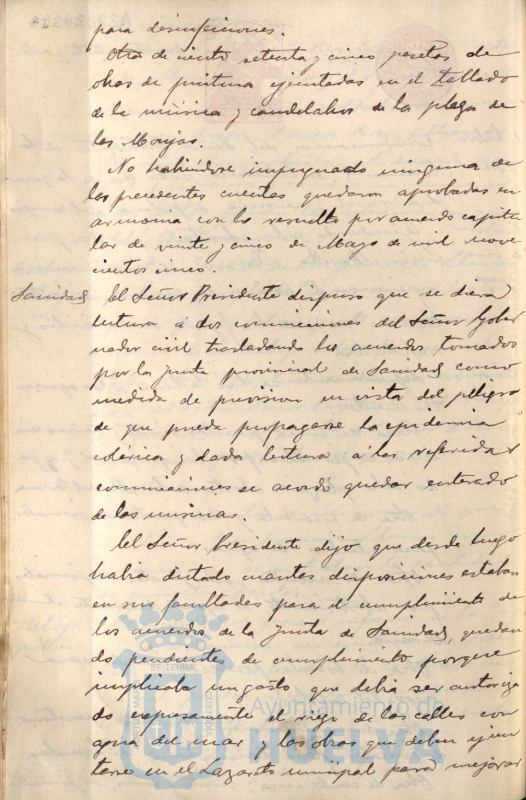 para desinfecciones.
Otra de ciento setenta y cinco pesetas de
obras de pintura ejecutadas en el tablado
de la música y candelabros de la plaza de
las Monjas.
No habiéndose impugnado ninguna de
las precedentes cuentas quedaron aprobadas en
armonia con lo resuelto por acuerdo capitu
lar de veinte y cinco de Mayo de mil nove
cientos cinco.
Sanidad
El Señor Presidente dispuso que se diera
lectura á dos comunicaciones del Señor Gober
nador civil trasladando los acuerdos tomados
por la Junta provincial de Sanidad como
medida de prevision en vista del peligro
de que pueda propagarse la epidemia
colérica y dada lectura á las referidas
comunicaciones se acordó quedar enterado
de las mismas.
El Señor Presidente dijo que desde luego
habia dictado cuantas disposiciones estaban
en sus facultades para el cumplimiento de
los acuerdos de la Junta de Sanidad, quedan
do pendientes de cumplimiento porque
implicaba un gasto que debia ser autoriza
do expresamente el riego de las calles con
agua del mar y las obras que deben ejecu
tarse en el Lazareto municipal para mejorar
Ayuntamiento de
HUELVA